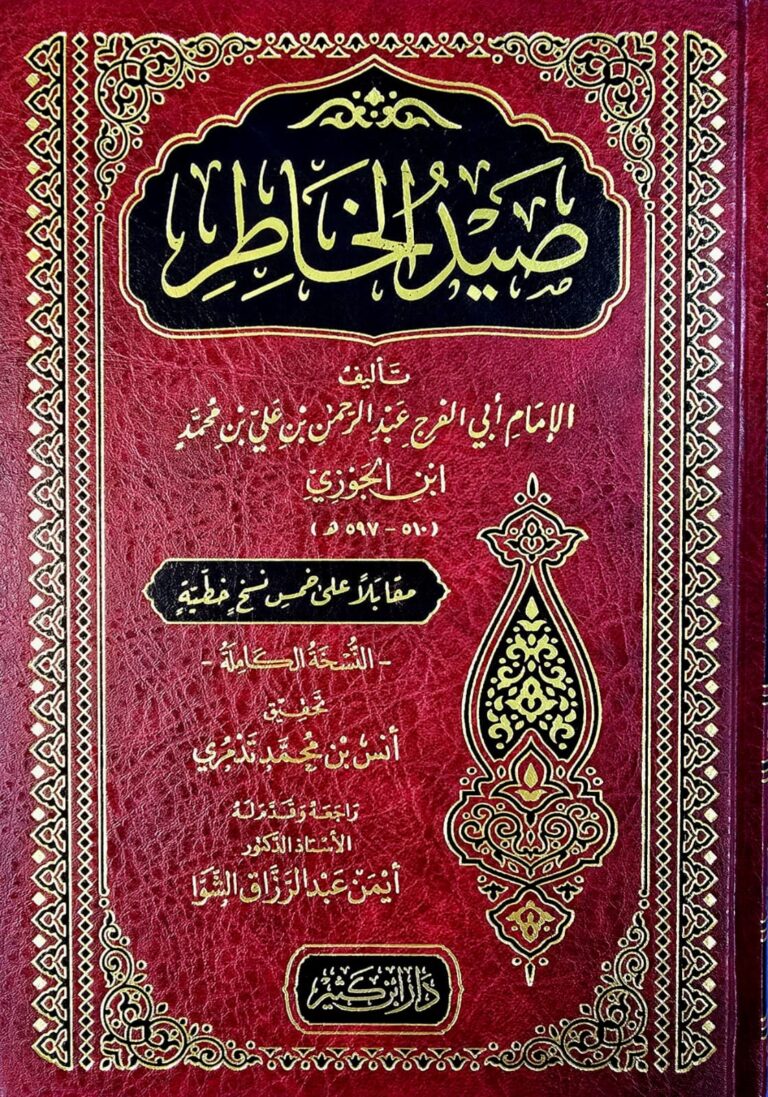 صَيْدُ الخَاطِرِ
تأليف
الإمَامِ أَبي الفَرجِ عَبْدِ الرَّحْمٰنِ بْنِ عَلِيِّ بْنِ مُحَمَّدٍ
ابْنِ الجَوْزِيِّ
(٥١٠ - ٥٩٧ هـ)
مقَابَلاً عَلىٰ خمْسِ نسَخٍ خطِّيَّةٍ
- النُّسْخَةُ الكَامِلَةُ -
تحقيق
أنَس بْن مُحَمَّد تَدْمُرِي
رَاجَعَهُ وَقَدَّمَ لَهُ
الأُسْتَاذ الدَّكتور
أَيْمَن عَبْد الرَّزَّاق الشَّوَّا
دَار ابْن كَثِير